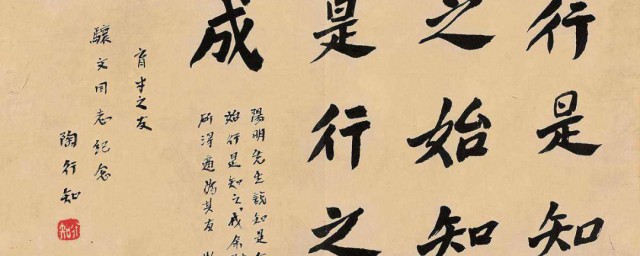 行是知
之始知
是行之
成
陽明先生說知是
始行是知之成余
所得適為其反
育才之友
驥文同志紀念
陶行知
行知